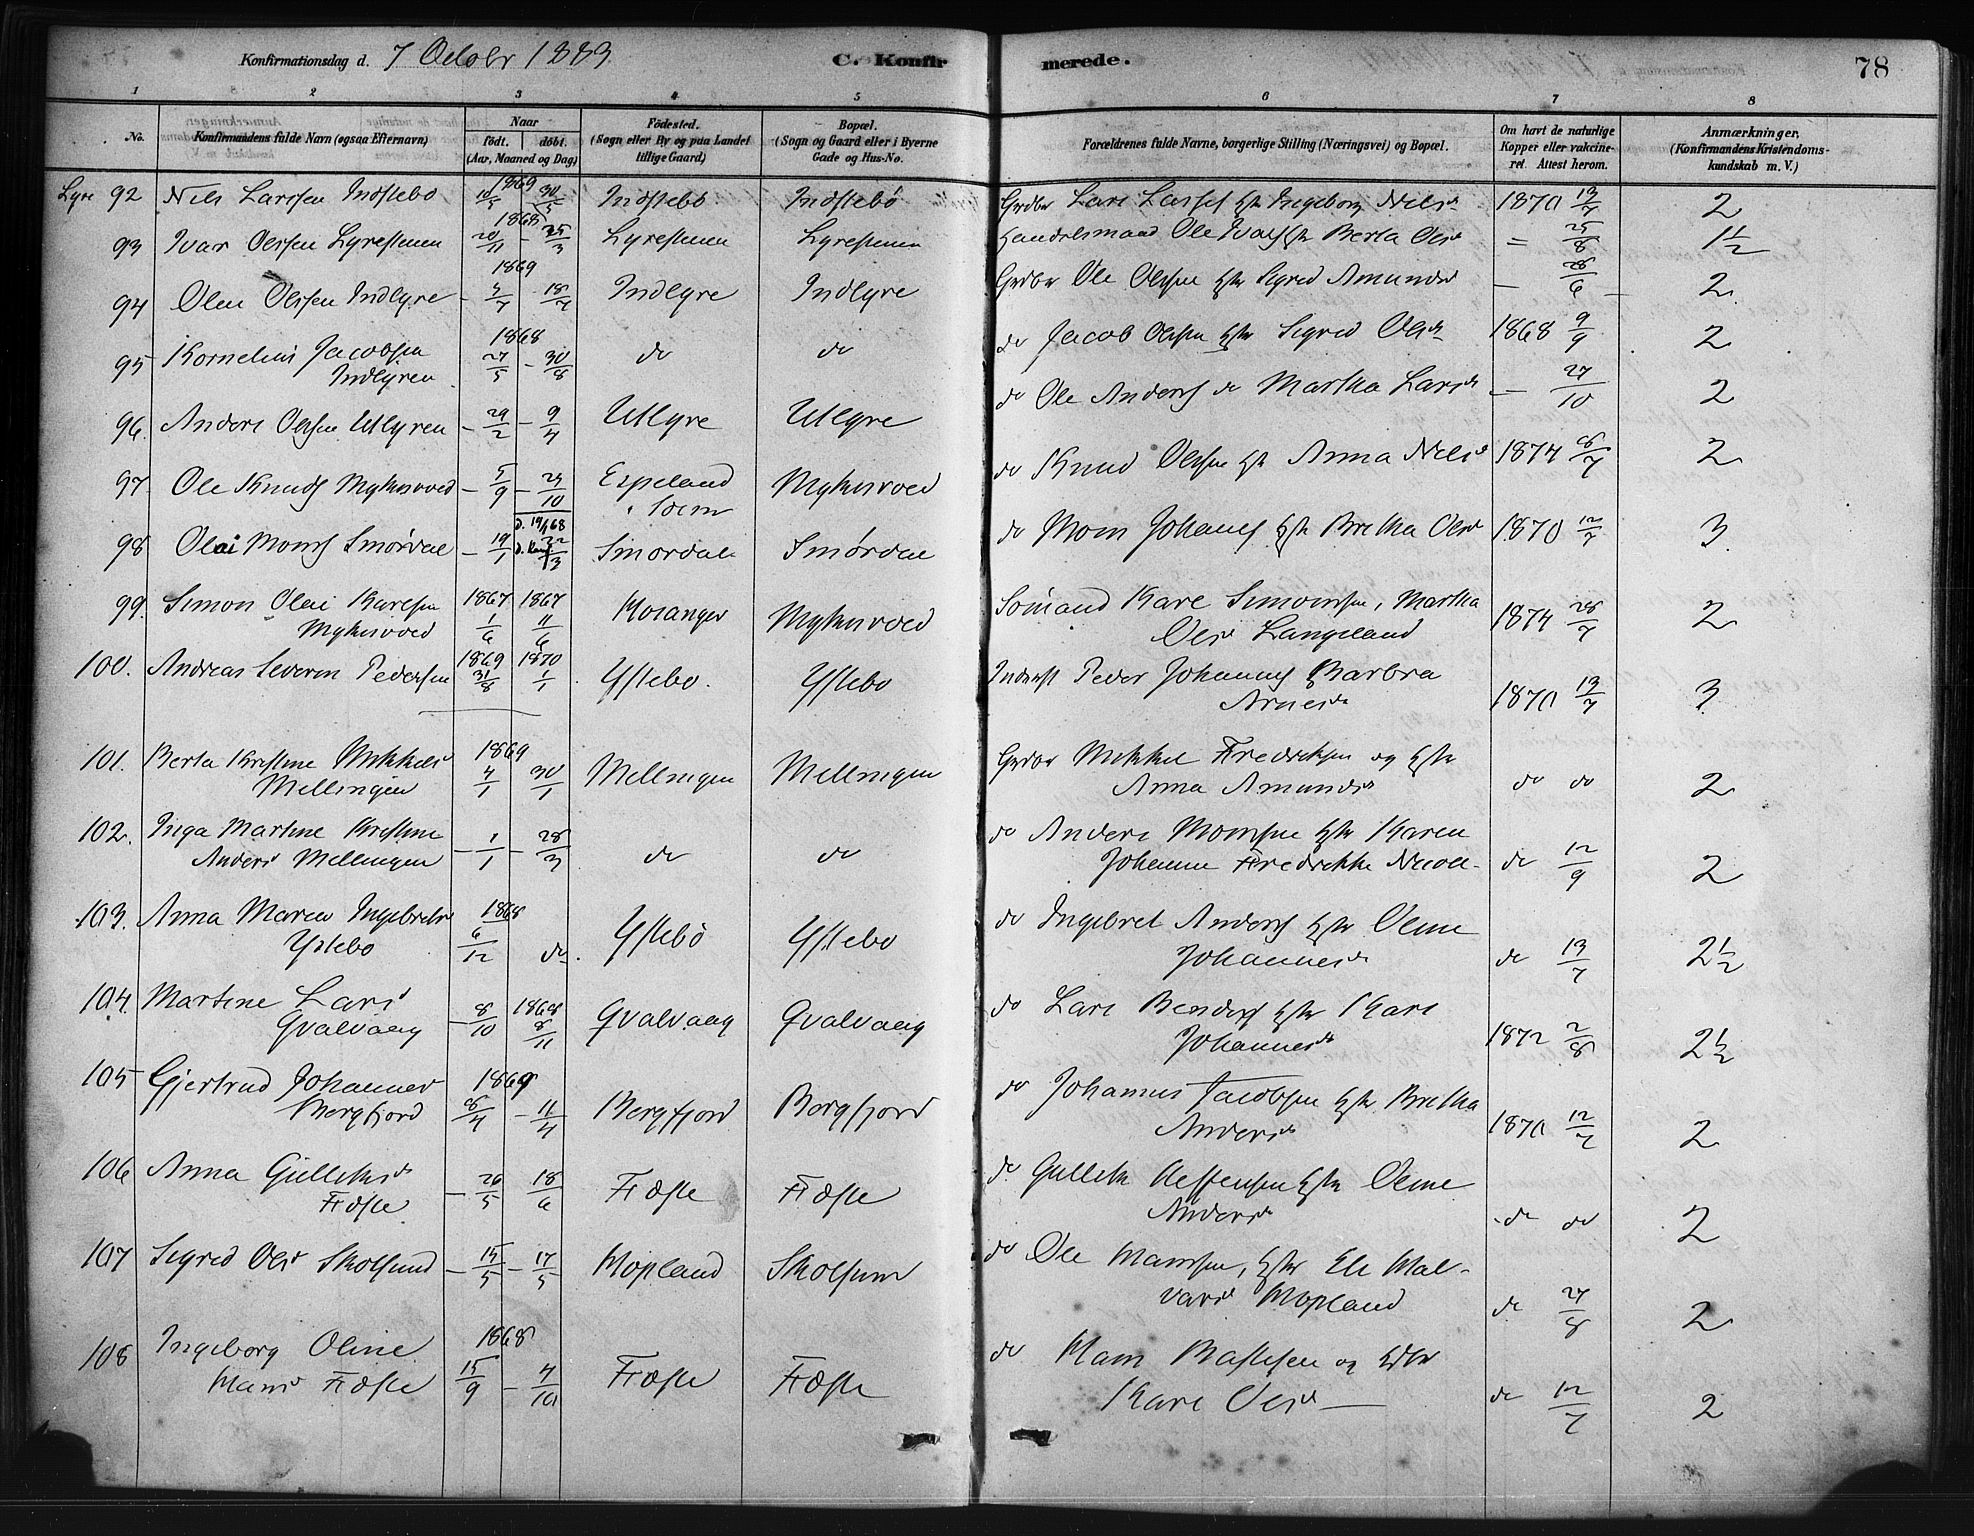 Konfirmationsdag d. 7 Octobr 1883. C. Konfirmerede. 78
1 2 3 4 5 6 7 8
No. Konfirmandens fulde Navn (ogsaa Efternavn) Naar født. døbt. (Aar, Maaned og Dag) Fødested. (Sogn eller By og paa Landet tillige Gaard) Bopæl. (Sogn og Gaard eller i Byerne Gade og Hus-No. Forældrenes fulde Navne, borgerlige Stilling (Næringsvei) og Bopæl. Om havt de naturlige Kopper eller vakcineret. Attest herom. Anmærkninger, (Konfirmandens Kristendomskundskab m. V.)
Lyre 92 Nils Larssen Indstebo 1869 30/5 Indstebø Indstebø Grdbr Lars Larss Hstr Ingeborg Nilsd 1870 13/7 2
93 Ivar Olssen Lyrestenen 1868 20/11 - 25/3 Lyrestenen Lyrestenen Handelsmand Ole Ivars Hstr Berta Olsd = 25/8 1½
94 Olen Olssen Indlyre 1869 - 4/7 18/7 Indlyre Indlyre Grdbr Ole Olssen Hstr Sigred Amundsd - 28/6 - 2
95 Kornelius Jacobsen Indlyren 1868 27/5 - 30/8 do do do Jacob Olssen Hstr Sigred Olsd 1868 9/9 2
96. Anders Olssen Utlyren - 29/2 - 9/4 Utlyre Utlyre do Ole Anderss do Martha Larsd - 27/10 2
97 Ole Knuds Myksvoed - 5/9 - 24/10 Espeland Myksvoed do Knud Olssen Hstr Anna Nilsd 1874 28/7 2
98 Olai Monss Smørdal - 19/1 d. 19/1 68 22/3 Smordal Smørdal do Mons Johans Hstr Bretha Olsd 1870 12/7 3
99. Simon Olai Karlsen Myksvoed 1867 1/6 1867 11/6 Hosanger Myksvoed Sömand Karl Simonssen, Martha Olsd Langeland 1874 28/7 2
100. Andreas Severin Pedersen 1869 31/8 1870 1/1 Ystebo. Ystebo Inderst Peder Johanns Barbra Arnesd 1870 13/7 3
101. Berta Kristine Mikkelsd Mellingen 1869 4/1 30/1 Mellingen Mellingen Grdbr Mikkel Fredriksen og Hstr Anna Amundsd do do 2
102. Inga Martine Kristine Andersd Mellingen - 1/1 - 28/3 do do do Anders Monssen Hstr Karen Johanne Fredrikke do 12/9 2
103. Anna Maria Ingebretsd Ystebo 1868 6/12 do. Ystebö Ystebo do Ingebret Anderss Hstr Oline Johannesd do 13/7 2½
104. Martine Larsd Qvalvaag - 8/10 1868 8/11 Qvalvaag Qvalvaag do Lars Hstr Kari Johannesd 1872 2/8 2½
105 Gjertrud Johannesd Bergfjord 1869 8/4 - 11/4 Bergfjord Bergfjord do Johannes Jacobsen Hstr Bretha Andersd 1870 12/7 2
106 Anna Gulleksd Fröste - 26/5 18/6 Fröste Fröste do Gullek Steffensen Hstr Oline Andersd do do 2
107 Sigred Olsd Skolsund - 15/5 - 17/5 Hopland Skolsund do Ole Hanssen, Hstr Eli Halvarsd Hopland do 27/8 2
108 Ingeborg Oline Hansd Fröste 1868 15/9 - 4/10 Fröste Fröste do Hans og Hstr Kari Olsd — do 12/7 2